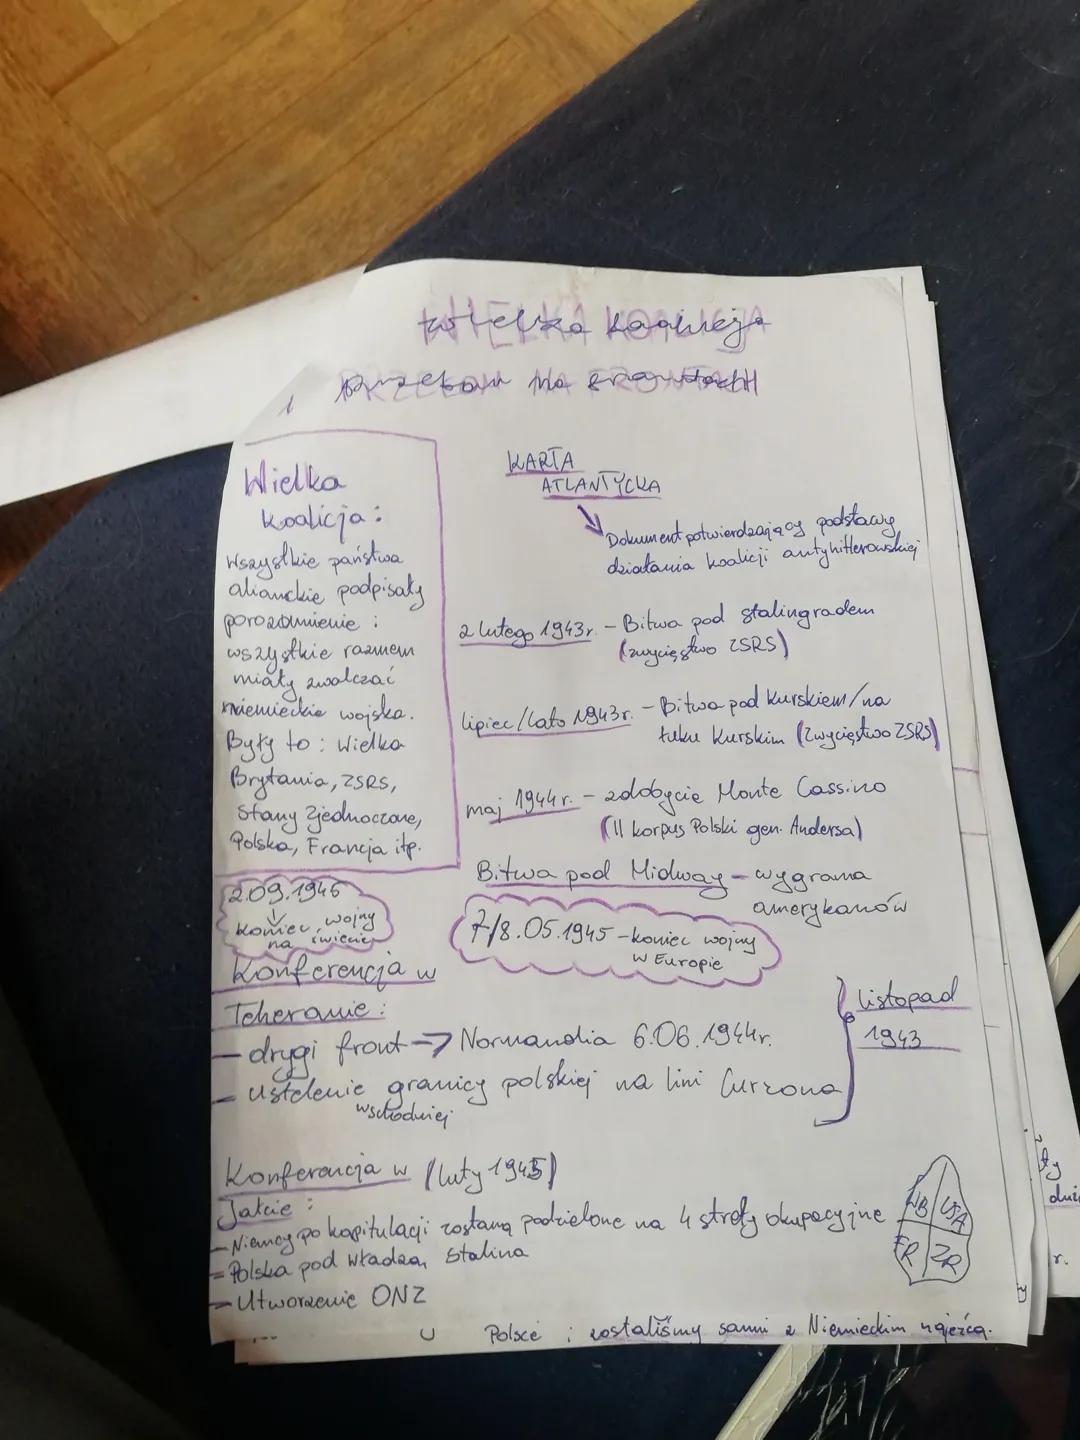 Wielka koalicja
przełom na frontach
Wielka
koalicja:
Wszystkie państwa
alianckie podpisały
porozumienie:
wszystkie razmem
miały zwalczać
niemieckie wojska.
Były to: Wielka
Brytania, ZSRS,
Stany Zjednoczone,
Polska, Francja itp.
KARTA
ATLANTYCKA
Dokument potwierdzający podstawy
działania koalicji antyhitlerowskiej
2 lutego 1943r. - Bitwa pod stalingradem
(zwycięstwo ZSRS)
lipiec/lato 1943r. - Bitwa pod kurskiem/na
łuku Kurskim (zwycięstwo ZSRS)
maj 1944r. - zdobycie Monte Cassino
(II korpus Polski gen. Andersa)
Bitwa pod Midway - wygrana
amerykanów
2.09.1945
koniec wojny
na świecie
7/8.05.1945 - koniec wojny
w Europie
Konferencja w
Teheranie:
- drugi front → Normandia 6.06.1944r.
- ustelenie granicy polskiej na lini Curzona
wschodniej
listopad
1943
Konferencja w (luty 1945)
Jałcie:
- Niemcy po kapitulacji zostaną podzielone na 4 strefy okupacyjne
- Polska pod władzą Stalina
- Utworzenie ONZ
WB USA
FR ZR
Polsce ; zostaliśmy sami z Niemieckim najeźcą.